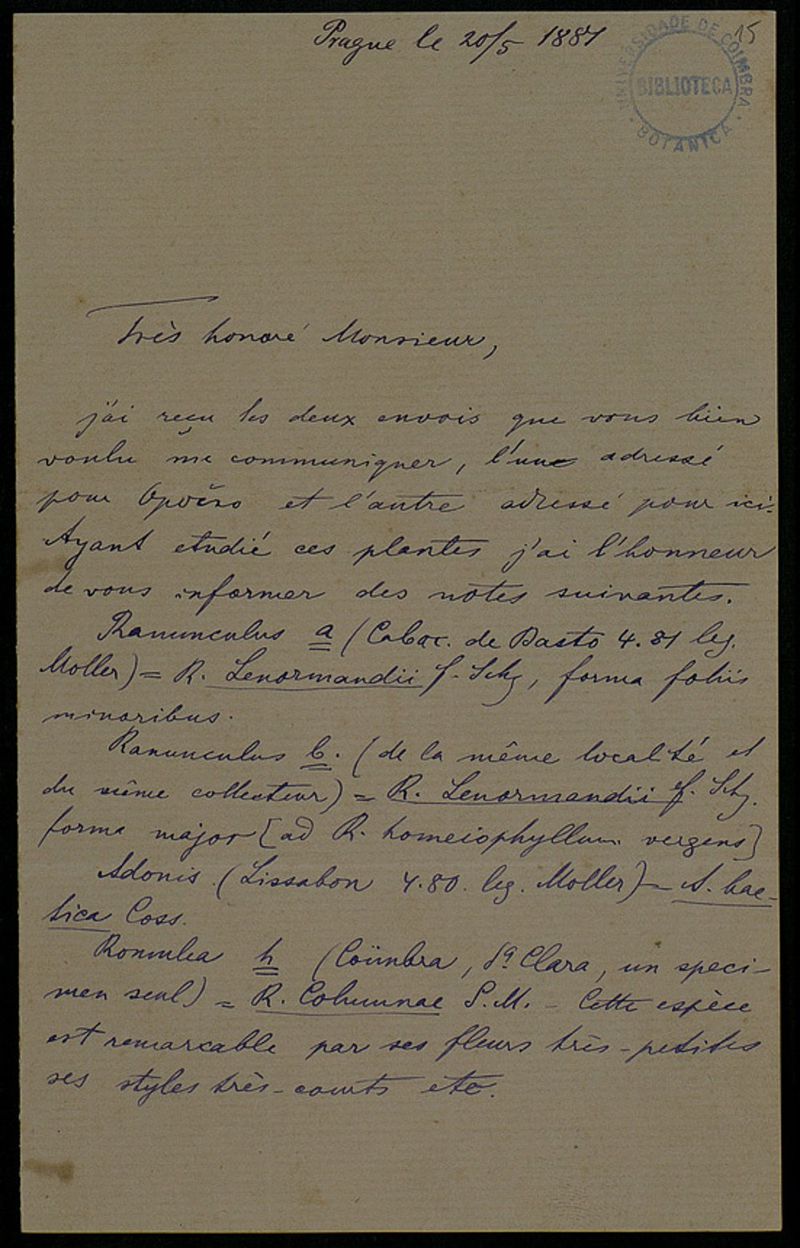 Prague le 20/5 1881
15
UNIVERSIDADE DE COIMBRA
BIBLIOTECA
BOTANICA
Très honoré Monsieur,
j'ai reçu les deux envois que vous bien
voulu me communiquer, l'une adressé
pour Opočno et l'autre adressé pour ici.
Ayant etudié ces plantes j'ai l'honneur
de vous informer des notes suivantes.
Ranunculus a (Cabec. de Basto 4.81 leg.
Moller) = R. Lenormandii f. Schz, forma foliis
minoribus.
Ranunculus b. (de la même localité et
du même collecteur) = R. Lenormandii f. Schz.
forma major [ad R. homeiophyllum vergens]
Adonis. (Lissabon 4.80. leg. Moller) = A. bae-
tica Coss.
Romulea h (Coïmbra, Sª Clara, un speci-
men seul) = R. Columnae S.M. - Cette espèce
est remarcable par ses fleurs très-petites
ses styles très-courts etc.